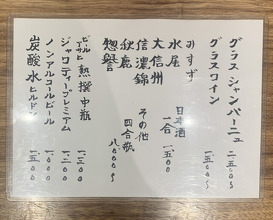 グラスシャンパーニュ
二五〇〇〜
グラスワイン
一五〇〇〜
みすず
水尾
大信州
信濃錦
秋鹿
惣誉
日本酒
一合 一、五〇〇
その他
四合瓶
八〇〇〇〜
ビール
アサヒ 熟撰中瓶
ジャロティープレミアム
一二〇〇
ノンアルコールビール
一〇〇〇
炭酸水 ヒルドン
一五〇〇